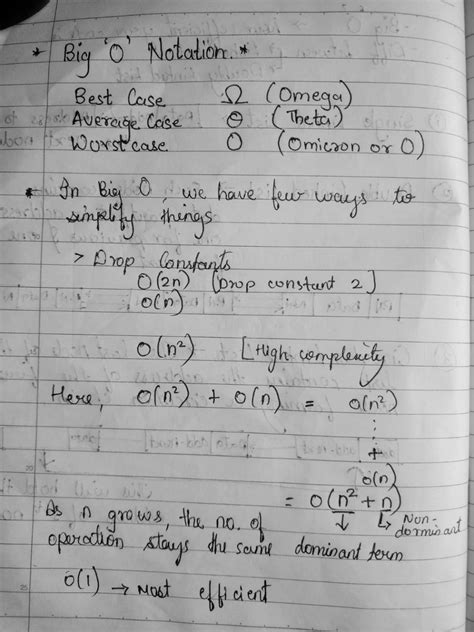 * Big 'O' Notation *
Best Case Ω (Omega)
Average Case Θ (Theta)
Worst case O (Omicron or O)
* In Big O, we have few ways to
simplify things
> Drop Constants
O(2n) (Drop constant 2)
O(n)
O(n²) [High complexity
Here, O(n²) + O(n) = O(n²)
+
O(n)
= O(n² + n)
↓ ↳ Non-
dorminant
As n grows, the no. of
operation stays the same dominant term
O(1) → Most efficient